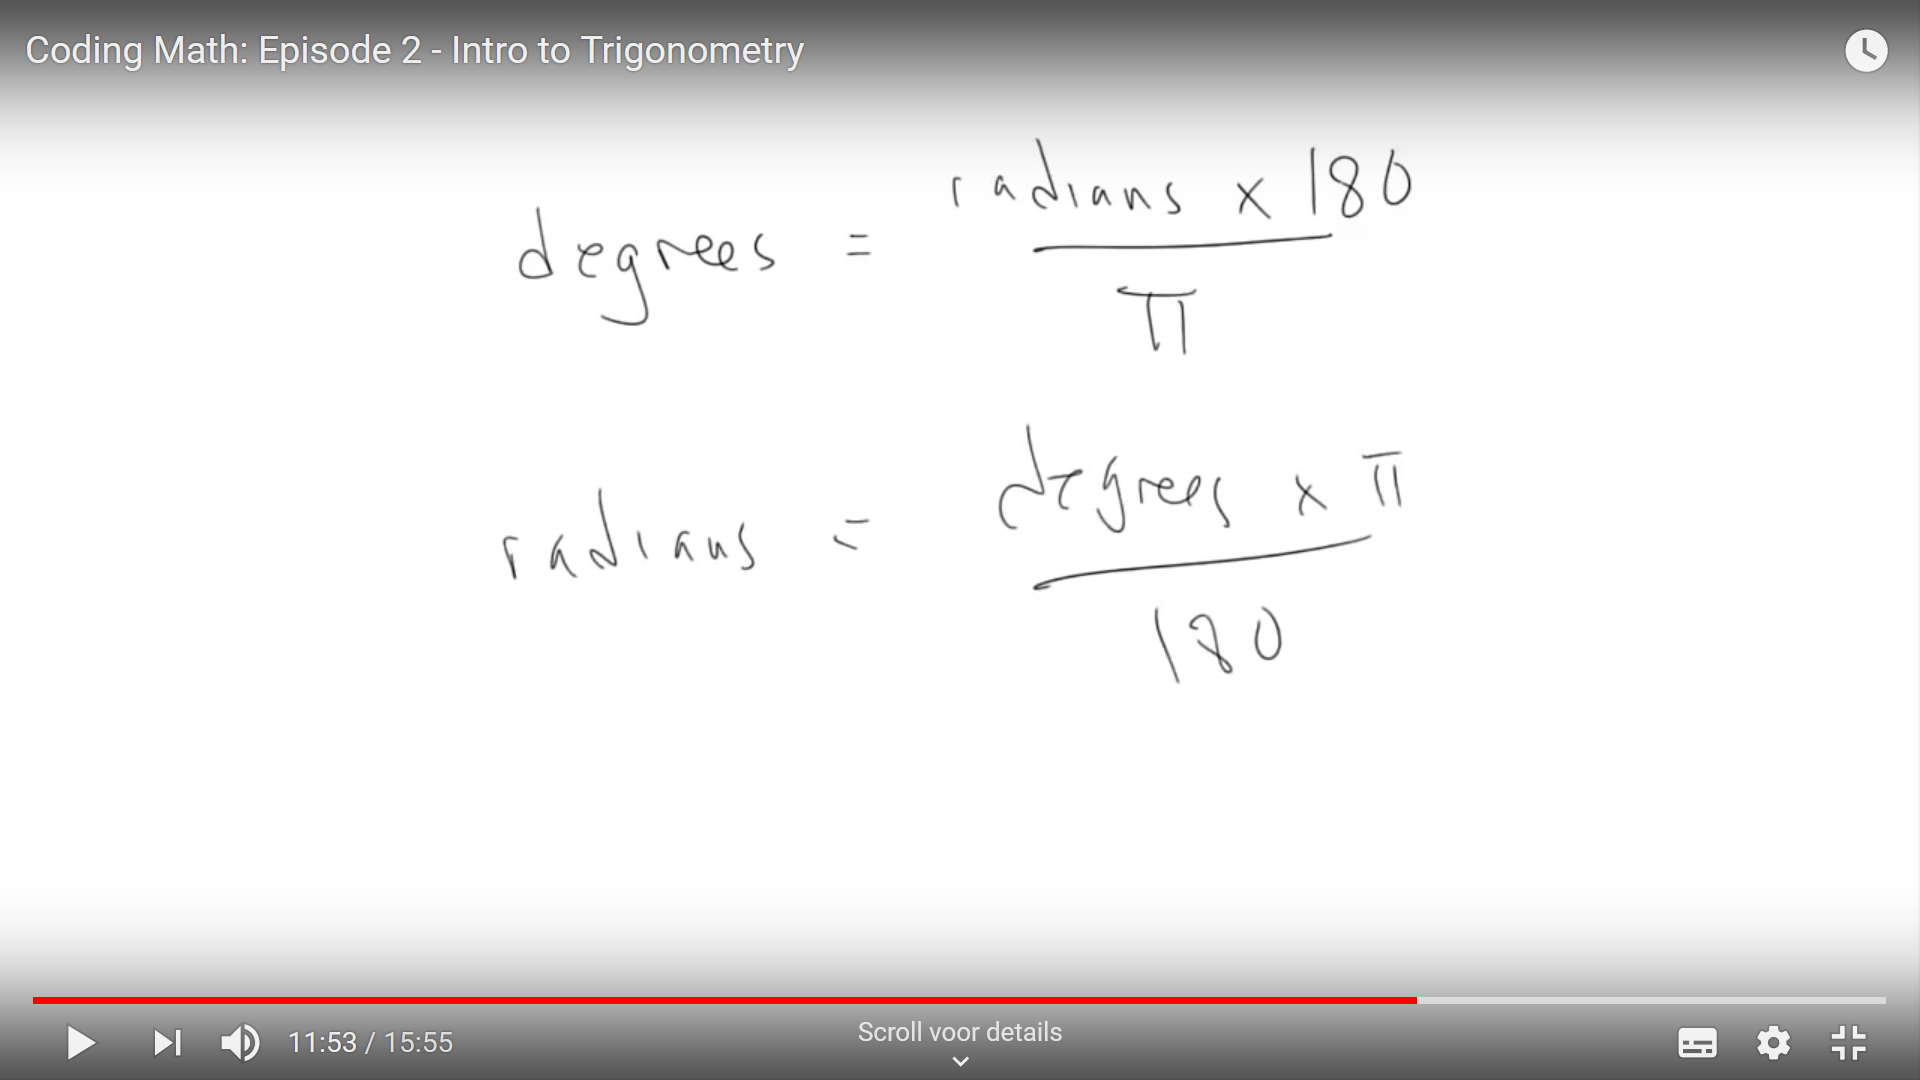 Coding Math: Episode 2 - Intro to Trigonometry
degrees = radians x 180
π
radians = degrees x π
180
11:53 / 15:55
Scroll voor details